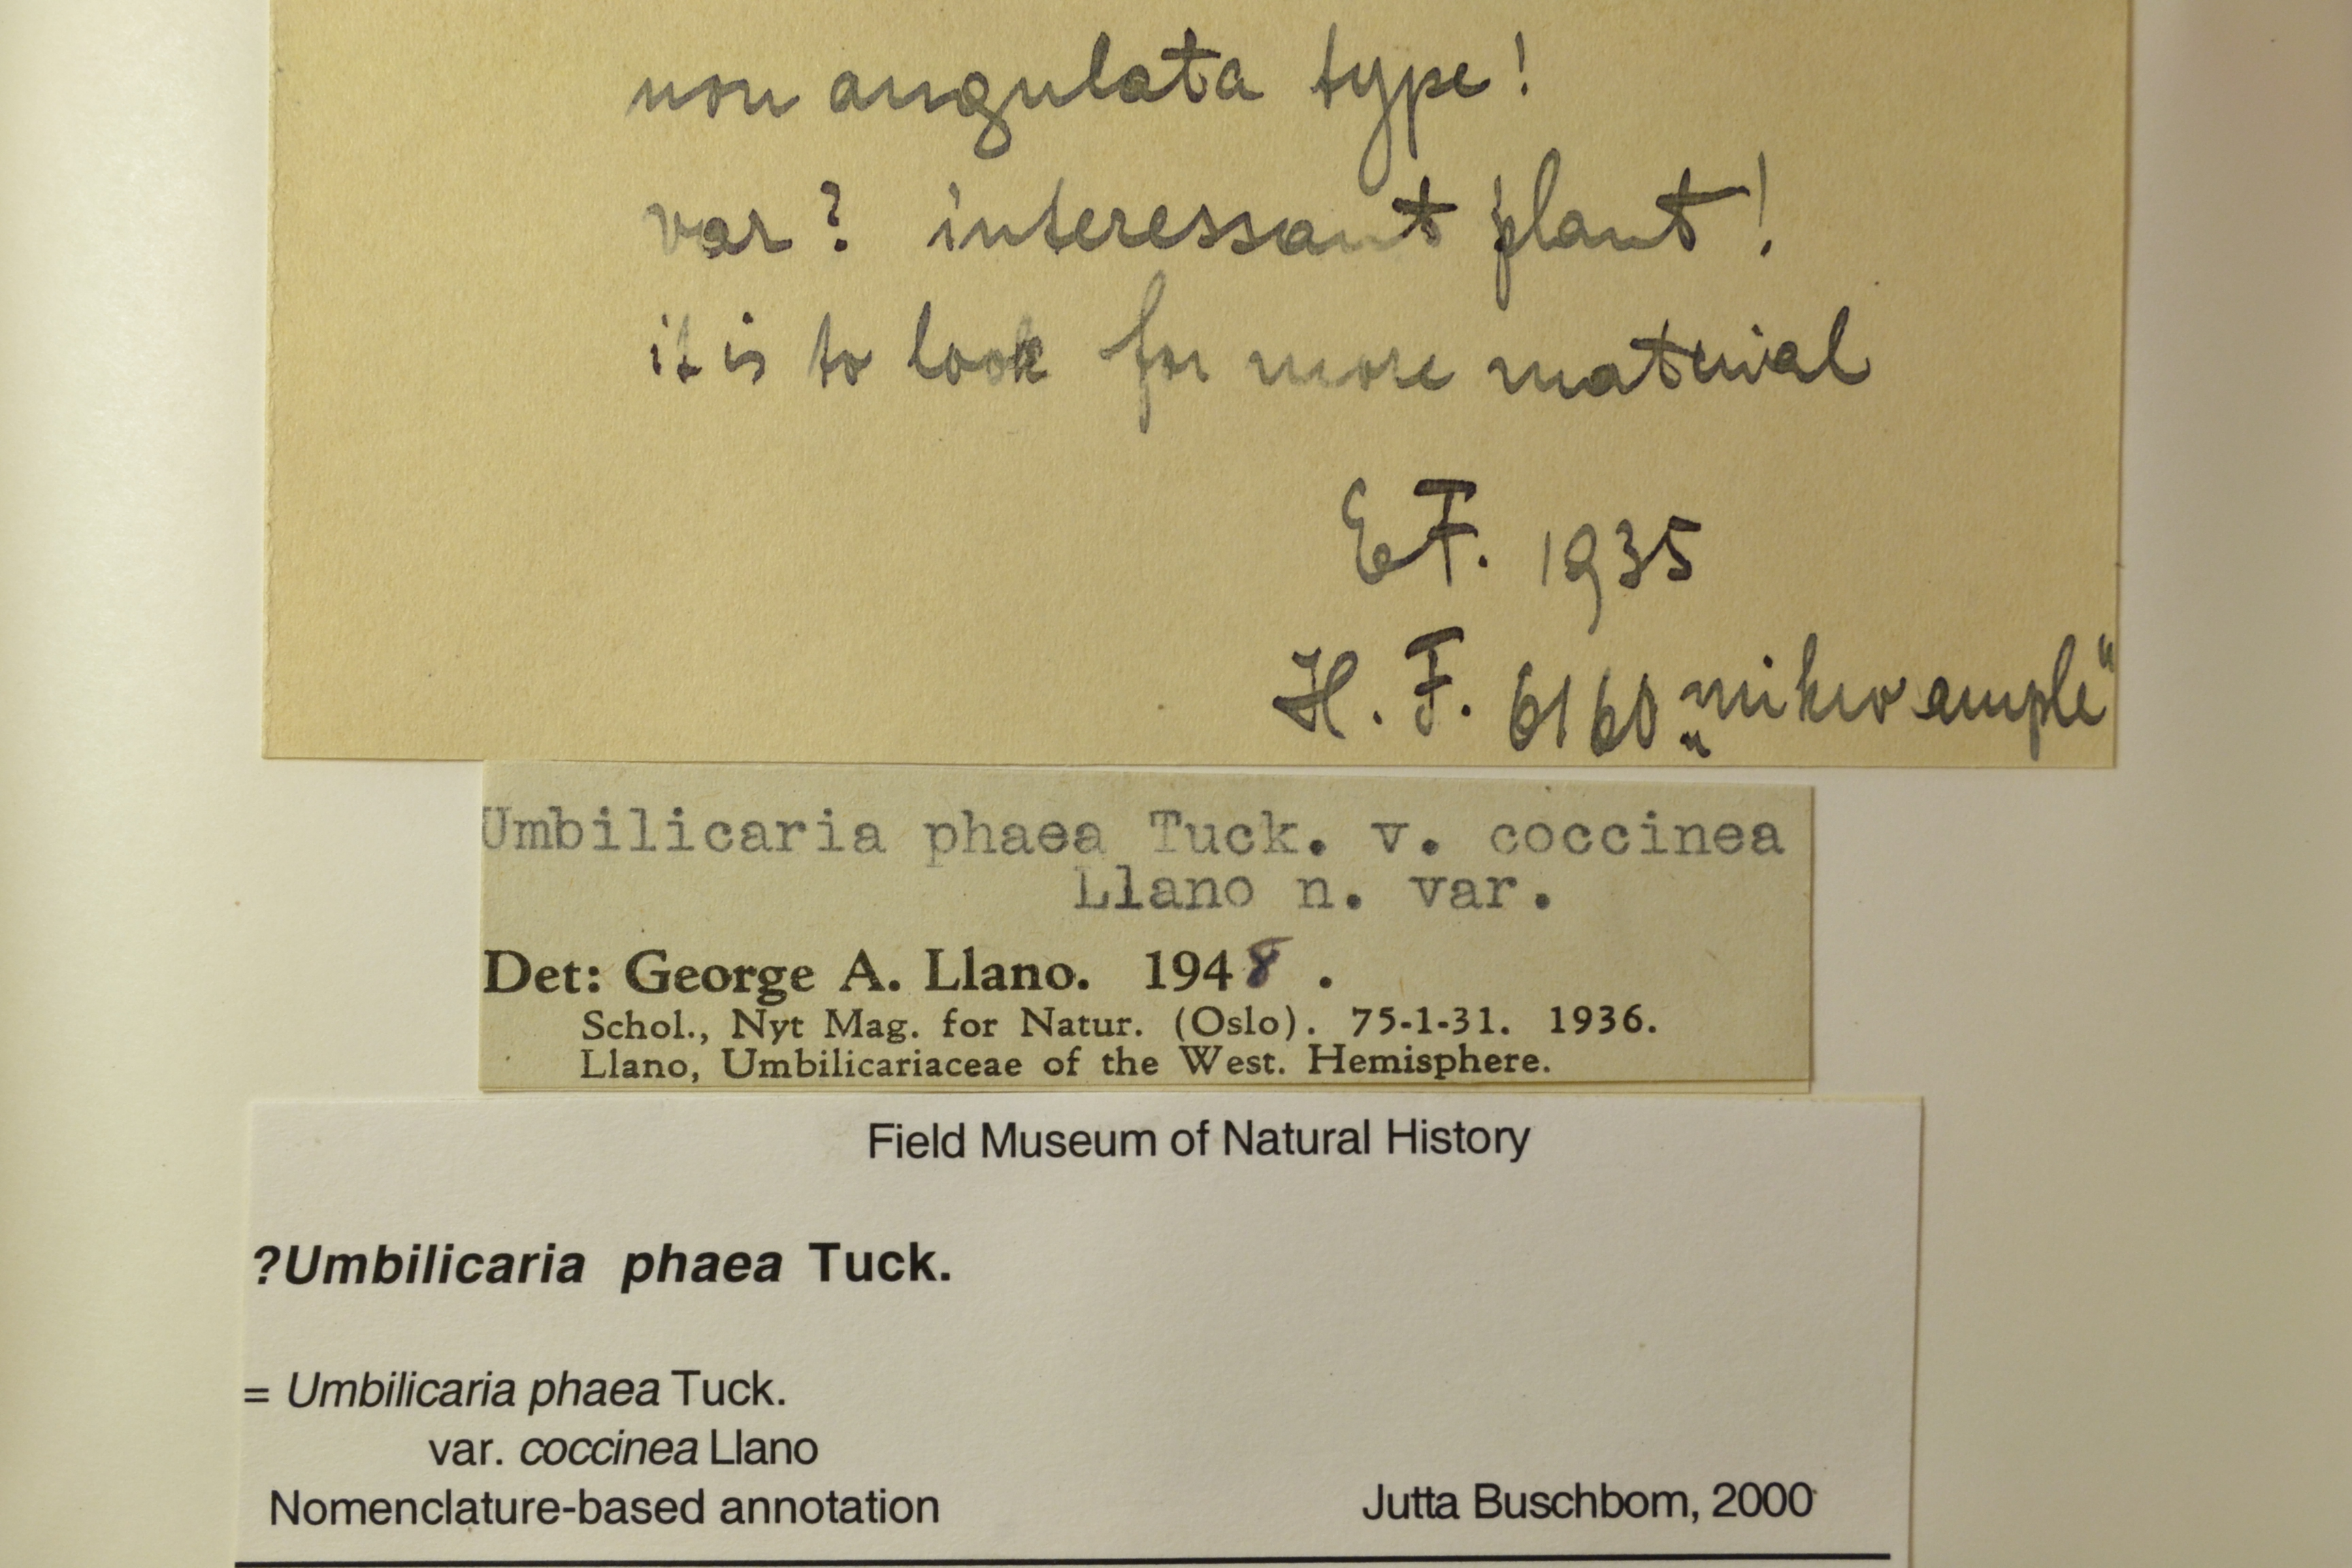 non angulata type!
var? interessant plant!
it is to look for more material
E F. 1935
H. F. 6160
Umbilicaria phaea Tuck. v. coccinea
Llano n. var.
Det: George A. Llano. 1948.
Schol., Nyt Mag. for Natur. (Oslo). 75-1-31. 1936.
Llano, Umbilicariaceae of the West. Hemisphere.
Field Museum of Natural History
?Umbilicaria phaea Tuck.
= Umbilicaria phaea Tuck.
var. coccinea Llano
Nomenclature-based annotation Jutta Buschbom, 2000